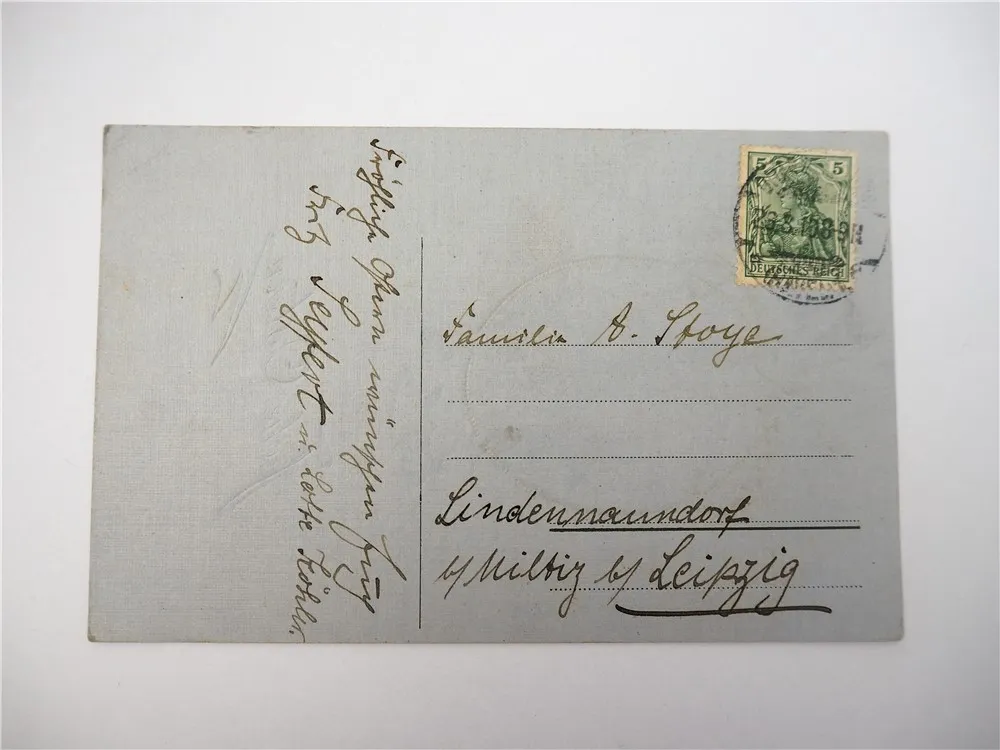 Fröhliche Ostern wünschen Euch
Fritz Seyffert u. Lotte Köhler.
5 5
DEUTSCHES REICH
Familie A. Stoye
Lindennaundorf
b/ Miltiz b/ Leipzig